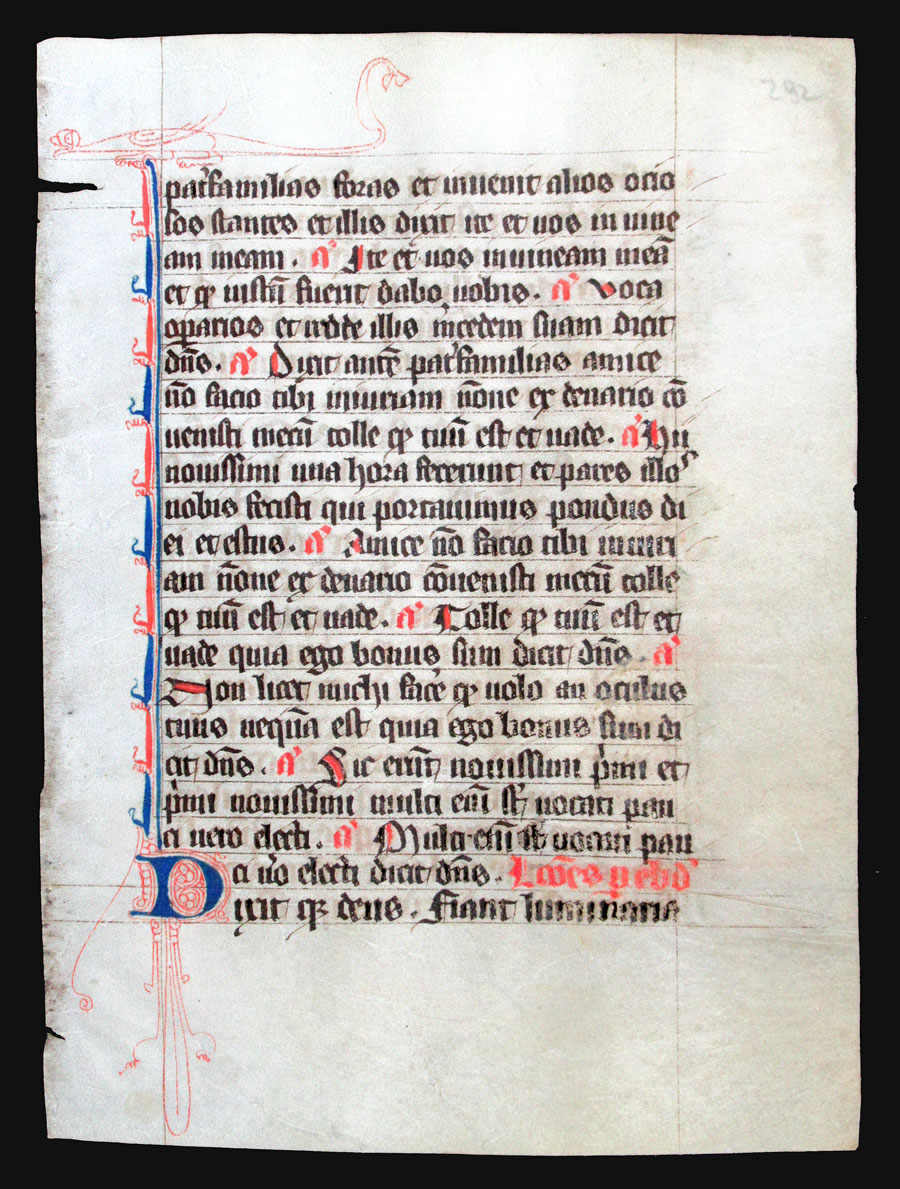 292
pat'familias foras et inuenit alios ocio
sos stantes et illis dixit ite et uos in uine
am meam . a' Ite et uos in uineam meā
et q̄ iustū fuerit dabo uobis . a' Voca
op̄arios et redde illis m̄cedem suam dicit
dn̄s . a' Dixit autē pat'familias amice
nō facio tibi iniuriam nōne ex denario cō
uenisti mecū tolle q̄ tuū est et uade . a' Hii
nouissimi una hora fecerunt et pares illos
nobis fecisti qui portauimus pondus di
ei et estus . a' Amice nō facio tibi iniuri
am nōne ex denario cōuenisti mecū tolle
q̄ tuū est et uade . a' Tolle q̄ tuū est et
uade quia ego bonus sum dicit dn̄s . a'
Non licet michi fac'e q̄ uolo an oculus
tuus nequā est quia ego bonus sum di
cit dn̄s . a' Sic erūt nouissimi p'mi et
p'mi nouissimi multi em̄ st' uocati pau
ci uero electi . a' Multi em̄ st' uocati pau
ci u'o electi dicit dn̄s . Lcōes p ebd'
Dixit q̄ deus . Fiant luminaria